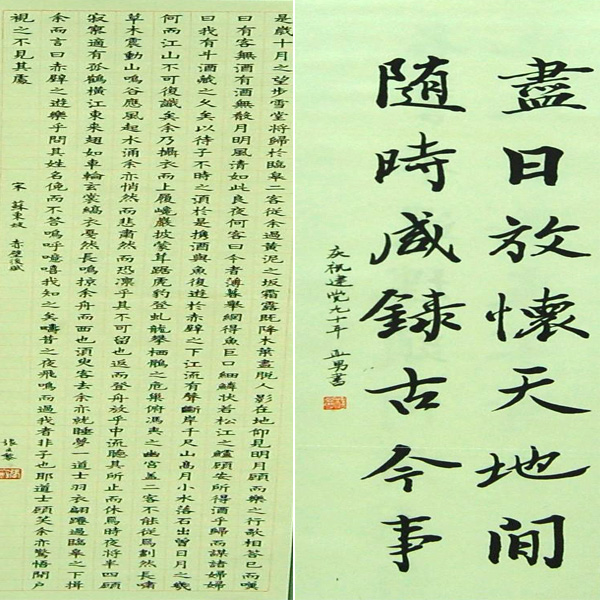 是歲十月之望步雪堂將歸於臨皋二客從余過黃泥之坂霜露既降木葉盡脫人影在地仰見明月顧而樂之行歌相答已而嘆
曰有客無酒有酒無殽月明風清如此良夜何客曰今者薄暮舉網得魚巨口細鱗狀若松江之鱸顧安所得酒乎歸而謀諸婦婦
曰我有斗酒藏之久矣以待子不時之須於是攜酒與魚復遊於赤壁之下江流有聲斷岸千尺山高月小水落石出曾日月之幾
何而江山不可復識矣余乃攝衣而上履巉巖披蒙茸踞虎豹登虬龍攀栖鶻之危巢俯馮夷之幽宮蓋二客不能從焉劃然長嘯
草木震動山鳴谷應風起水涌余亦悄然而悲肅然而恐凜乎其不可留也返而登舟放乎中流聽其所止而休焉時夜將半四顧
寂寥適有孤鶴橫江東來翅如車輪玄裳縞衣戛然長鳴掠余舟而西也須臾客去余亦就睡夢一道士羽衣翩躚過臨皋之下揖
余而言曰赤壁之遊樂乎問其姓名俛而不答嗚呼噫嘻我知之矣疇昔之夜飛鳴而過我者非子也耶道士顧笑余亦驚悟開戶
視之不見其處
宋 蘇東坡 赤壁後賦
盡日放懷天地間
随時咸錄古今事
庆祝建党九十年 正男書